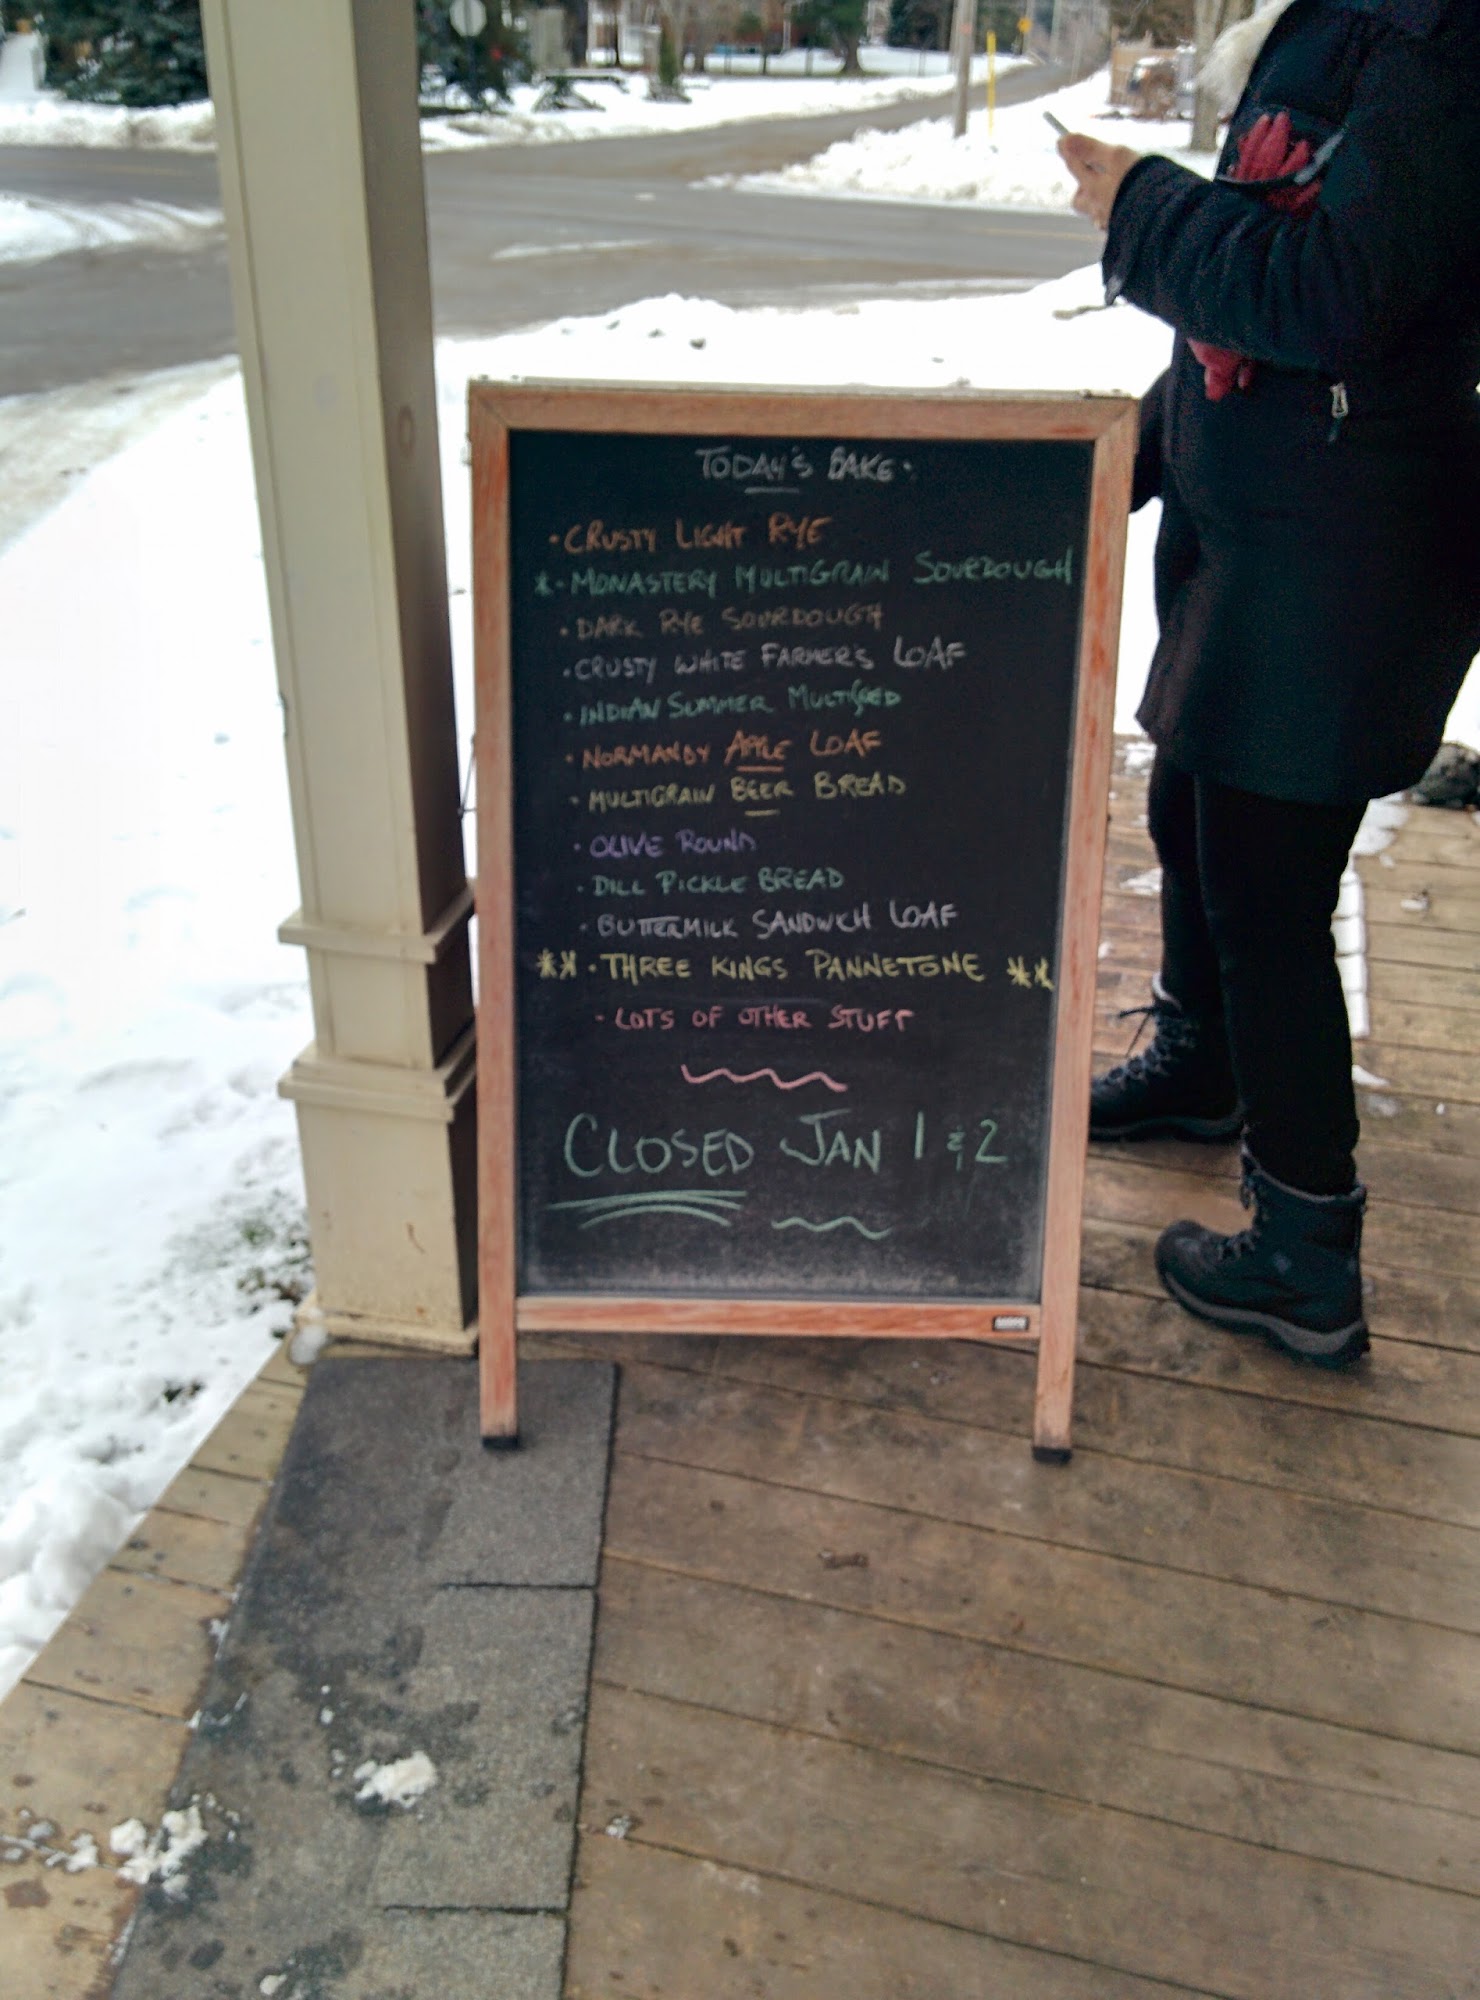 TODAY'S BAKE:
· CRUSTY LIGHT RYE
* · MONASTERY MULTIGRAIN SOURDOUGH
· DARK RYE SOURDOUGH
· CRUSTY WHITE FARMER'S LOAF
· INDIAN SUMMER MULTISEED
· NORMANDY APPLE LOAF
· MULTIGRAIN BEER BREAD
· OLIVE ROUND
· DILL PICKLE BREAD
· BUTTERMILK SANDWICH LOAF
** · THREE KINGS PANNETONE **
· LOTS OF OTHER STUFF
CLOSED JAN 1 & 2